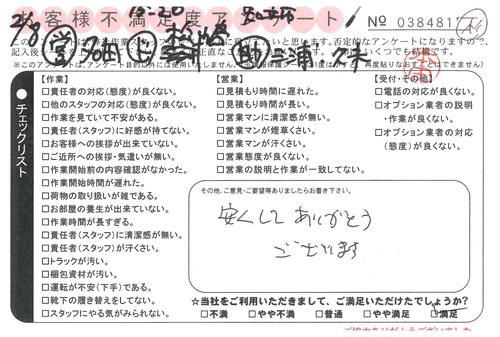 お客様不満足度アンケート
No 0384811
【作業】
□責任者の対応(態度)が良くない。
□他のスタッフの対応(態度)が良くない。
□作業を見ていて不安がある。
□責任者(スタッフ)に好感が持てない。
□お客様への挨拶が出来ていない。
□ご近所への挨拶・気遣いが無い。
□作業開始前の内容確認がなかった。
□作業開始時間が遅れた。
□荷物の取り扱いが雑である。
□お部屋の養生が出来ていない。
□作業時間が長すぎる。
□責任者(スタッフ)に清潔感が無い。
□責任者(スタッフ)が汗くさい。
□トラックが汚い。
□梱包資材が汚い。
□運転が不安(下手)である。
□靴下の履き替えをしてない。
□スタッフにやる気がみられない。
【営業】
□見積もり時間に遅れた。
□見積もり時間が長い。
□営業マンに清潔感が無い。
□営業マンが煙草くさい。
□営業マンが汗くさい。
□営業態度が良くない。
□営業の説明と作業が一致してない。
【受付・その他】
□電話の対応が良くない。
□オプション業者の説明
・作業が良くない。
□オプション業者の対応
(態度)が良くない。
チェックリスト
その他、ご意見・ご要望等ありましたらお書き下さい。
安くしてありがとう
ございます
☆当社をご利用いただきまして、ご満足いただけたでしょうか?
□不満 □やや不満 □普通 □やや満足 □満足
ご協力ありがとうございました